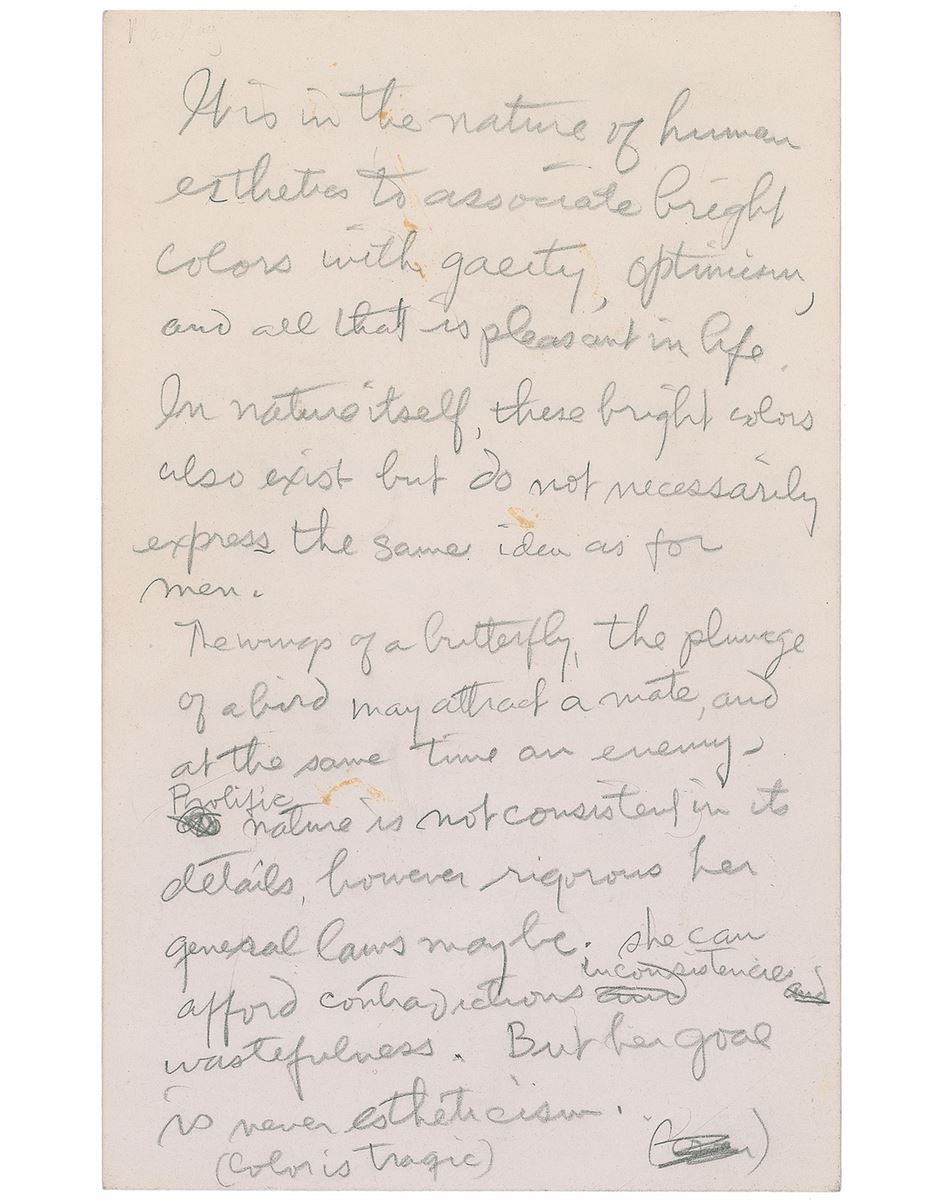 It is in the nature of human
esthetics to associate bright
colors with gaeity, optimism,
and all that is pleasant in life.
In nature itself, these bright colors
also exist but do not necessarily
express the same idea as for
men.
The wings of a butterfly, the plumage
of a bird may attract a mate, and
at the same time an enemy.
Prolific
nature is not consistent in its
details, however rigorous her
general laws may be. she can
inconsistencies and
afford contradictions and
wastefulness. But her goal
is never estheticism.
(Color is tragic)